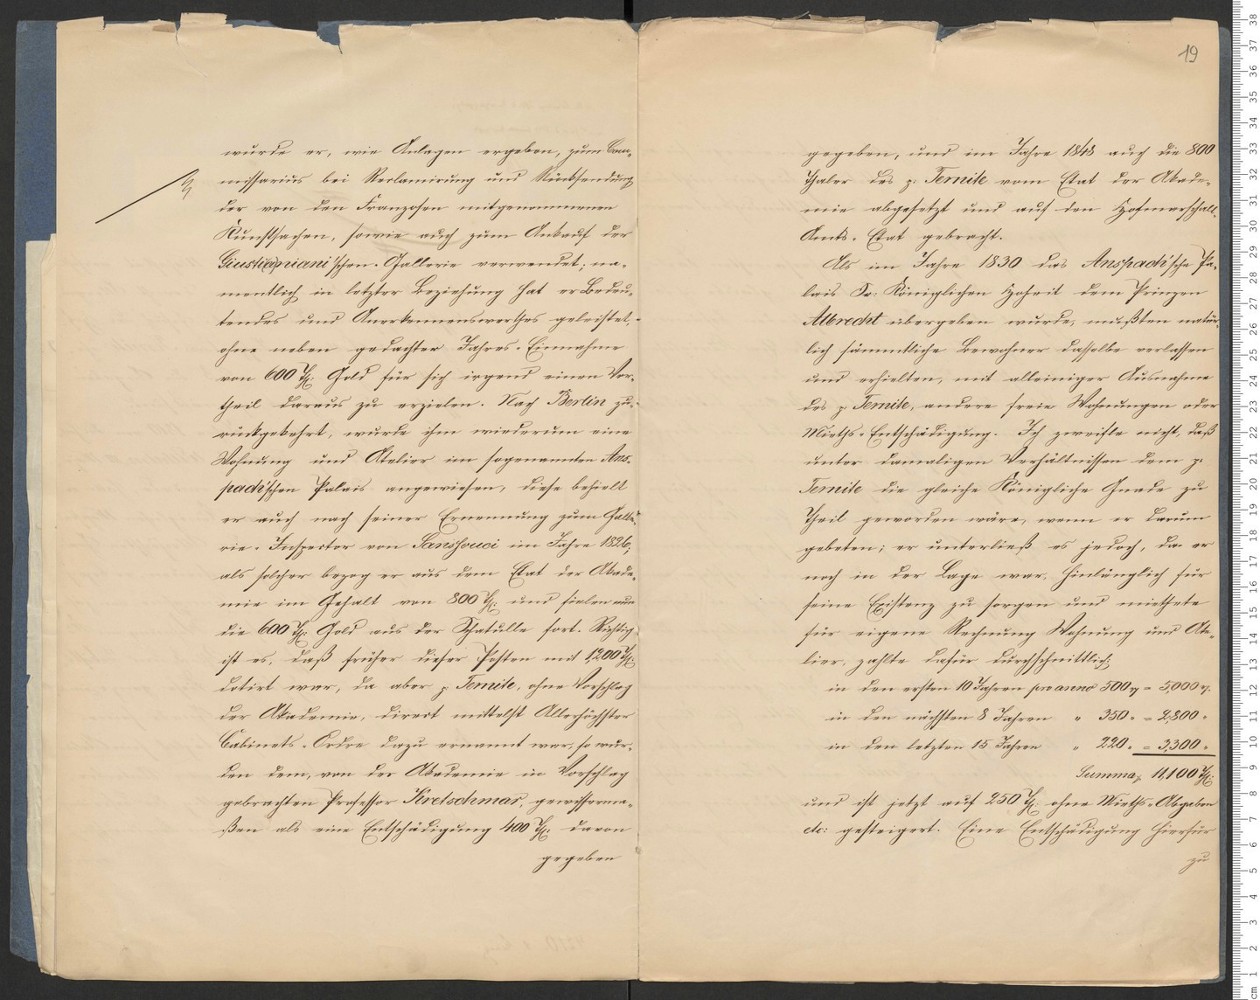 wurde er, wie Anlagen ergeben, zum Com-
missarius bei Reclamirung und Rücksendung
der von den Franzosen mitgenommenen
Kunstsachen, sowie auch zum Ankauf der
Giustiniani'schen-Gallerie verwendet; na-
mentlich in letzter Beziehung hat er Bedeu-
tendes und Anerkennenswerthes geleistet,
ohne neben gedachter Jahres-Einnahme
von 600 rt. Gold für sich irgend einen Vor-
theil daraus zu erzielen. Nach Berlin zu-
rückgekehrt, wurde ihm wiederum eine
Wohnung und Atelier im sogenannten Ans-
pach'schen Palais angewiesen, diese behielt
er auch nach seiner Ernennung zum Galle-
rie-Inspector von Sanssouci im Jahre 1826;
als solcher bezog er aus dem Etat der Akade-
mie im Gehalt von 800 rt. und fielen nun
die 600 rt. Gold aus der Schatulle fort. Richtig
ist es, daß früher dieser Posten mit 1,200 rt.
dotirt war, da aber p. Ternite, ohne Vorschlag
der Akademie, direct mittelst Allerhöchster
Cabinets-Ordre dazu ernannt war, so wur-
den dem, von der Akademie in Vorschlag
gebrachten Professor Kretschmar, gewisserma-
ßen als eine Entschädigung 400 rt. davon
gegeben
19
gegeben, und im Jahre 1848 auch die 800
Thaler des p. Ternite vom Etat der Akade-
mie abgesetzt und auf den Hofmarschall-
Amts-Etat gebracht.
Als im Jahre 1830 das Anspach'sche Pa-
lais Sr. Königlichen Hoheit dem Prinzen
Albrecht übergeben wurde, mußten natür-
lich sämmtliche Bewohner dasselbe verlassen
und erhielten, mit alleiniger Ausnahme
des p. Ternite, andere freie Wohnungen oder
Mieths-Entschädigung. Ich zweifle nicht, daß
unter damaligen Verhältnissen dem p.
Ternite die gleiche Königliche Gnade zu
Theil geworden wäre, wenn er darum
gebeten; er unterließ es jedoch, da er
noch in der Lage war, hinlänglich für
seine Existenz zu sorgen und miethete
für eigene Rechnung Wohnung und Ate-
lier, zahlte dafür durchschnittlich
in den ersten 10 Jahren pro anno 500 rt. = 5,000 rt.
in den nächsten 8 Jahren " 350. = 2,800.
in den letzten 15 Jahren " 220. = 3,300.
Summa, 11,100 rt.
und ist jetzt auf 250 rt. ohne Mieths-Abgaben
etc: gesteigert. Eine Entschädigung hierfür
zu